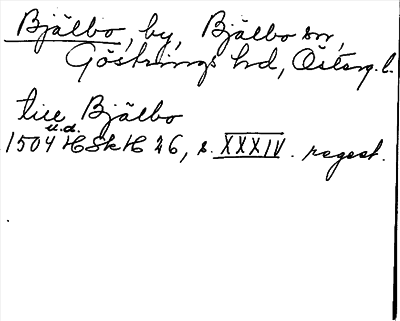 Bjälbo, by, Bjälbo sn,
Göstrings hd, Österg. l.
till Bjälbo
1504 u.d. HSkH 26, s. XXXIV. regest.